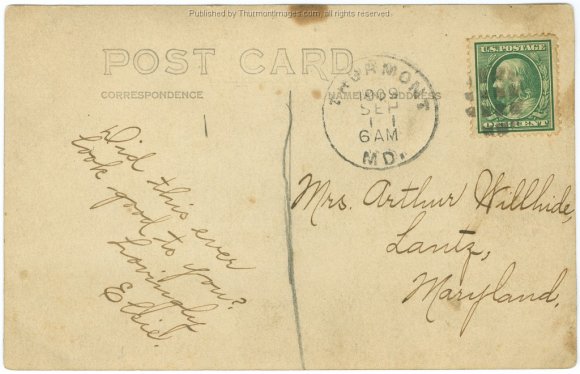 Published by ThurmontImages.com, all rights reserved.
POST CARD
CORRESPONDENCE
NAME AND ADDRESS
THURMONT
1909
SEP
11
6AM
MD.
U.S. POSTAGE
ONE CENT
Did this ever
look good to you?
Lovingly
Effie.
Mrs. Arthur Willhide,
Lantz,
Maryland.